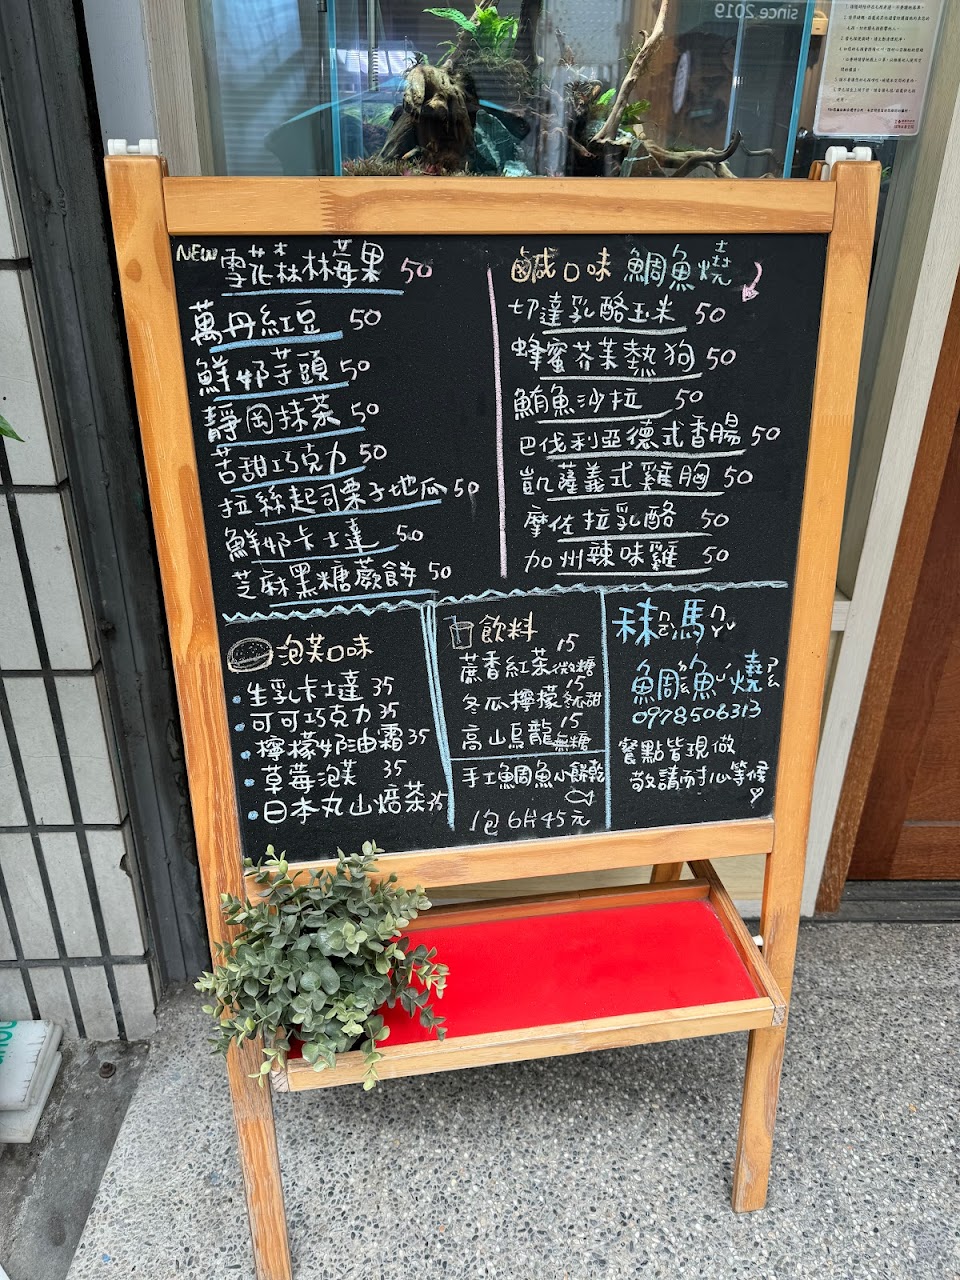 since 2019
NEW 雪花森林莓果 50
萬丹紅豆 50
鮮奶芋頭 50
靜岡抹茶 50
苦甜巧克力 50
拉絲起司栗子地瓜 50
鮮奶卡士達 50
芝麻黑糖蕨餅 50
鹹口味 鯛魚燒
切達乳酪玉米 50
蜂蜜芥茉熱狗 50
鮪魚沙拉 50
巴伐利亞德式香腸 50
凱薩義式雞胸 50
摩佐拉乳酪 50
加州辣味雞 50
泡芙口味
生乳卡士達 35
可可巧克力 35
檸檬奶油霜 35
草莓泡芙 35
日本丸山焙茶 35
飲料
蔗香紅茶微糖 15
冬瓜檸檬冬瓜甜 15
高山烏龍無糖 15
手工鯛魚小餅乾
1包6片45元
秣馬
鯛魚燒
0978506313
餐點皆現做
敬請耐心等候